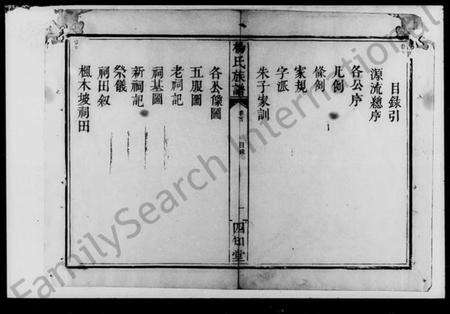 目錄引
源流總序
各公序
凡例
條例
家規
字派
朱子家訓
楊氏族譜
卷首
目錄
一
四知堂
各公像圖
五服圖
老祠記
祠基圖
新祠記
祭儀
祠田叙
楓木坡祠田
FamilySearch International